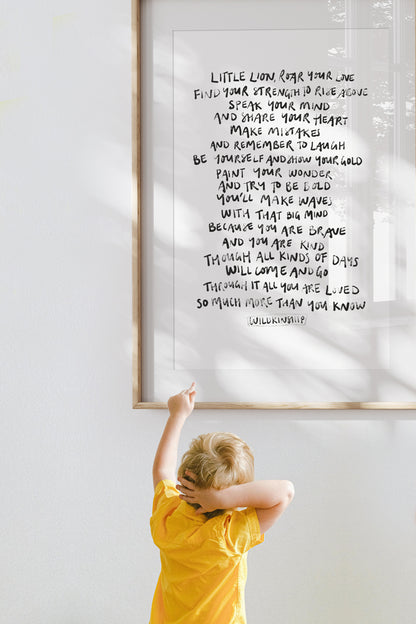 LITTLE LION, ROAR YOUR LOVE
FIND YOUR STRENGTH TO RISE ABOVE
SPEAK YOUR MIND
AND SHARE YOUR HEART
MAKE MISTAKES
AND REMEMBER TO LAUGH
BE YOURSELF AND SHOW YOUR GOLD
PAINT YOUR WONDER
AND TRY TO BE BOLD
YOU'LL MAKE WAVES
WITH THAT BIG MIND
BECAUSE YOU ARE BRAVE
AND YOU ARE KIND
THOUGH ALL KINDS OF DAYS
WILL COME AND GO
THROUGH IT ALL YOU ARE LOVED
SO MUCH MORE THAN YOU KNOW
(WILDKINSHIP)